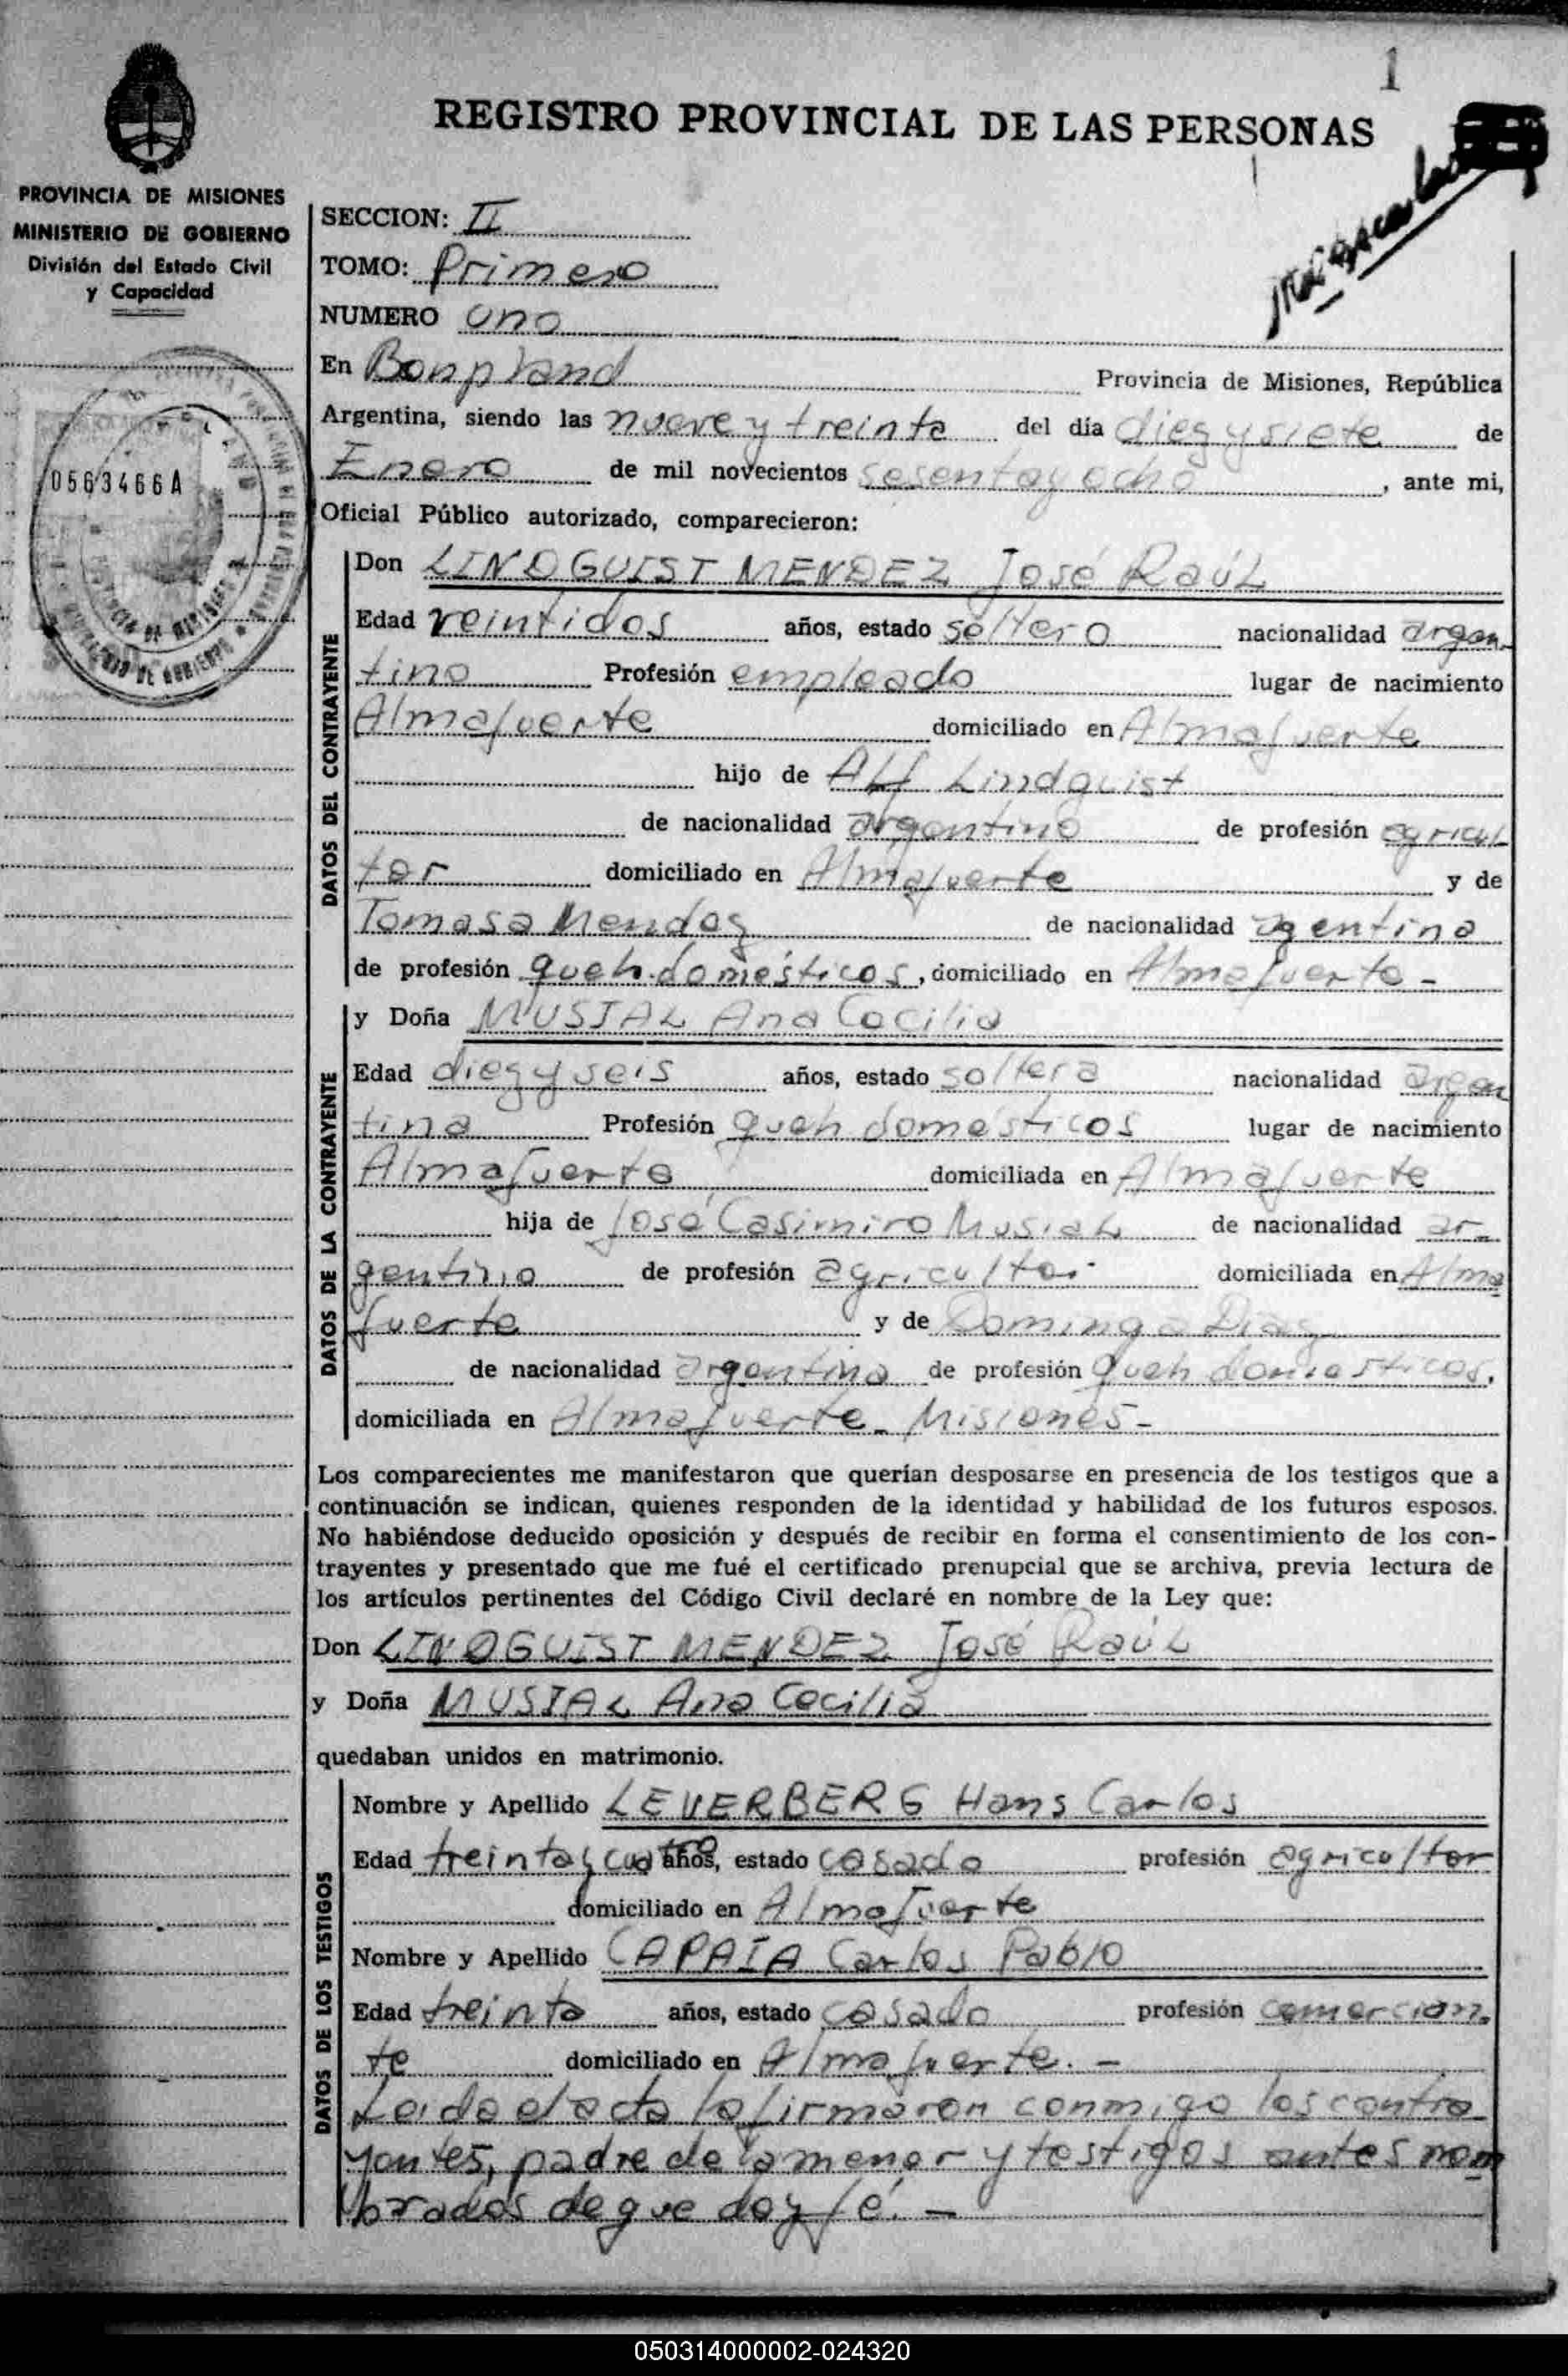 1
REGISTRO PROVINCIAL DE LAS PERSONAS
PROVINCIA DE MISIONES
MINISTERIO DE GOBIERNO
División del Estado Civil
y Capacidad
0563466A
SECCION: II
TOMO: Primero
NUMERO uno
En Bonpland Provincia de Misiones, República
Argentina, siendo las nueve y treinta del día diez y siete de
Enero de mil novecientos sesenta y ocho, ante mi,
Oficial Público autorizado, comparecieron:
DATOS DEL CONTRAYENTE
Don LINDGUIST MENDEZ José Raúl
Edad veintidos años, estado soltero nacionalidad argen
tino Profesión empleado lugar de nacimiento
Almafuerte domiciliado en Almafuerte
hijo de Alf Lindquist
de nacionalidad argentino de profesión agricul
tor domiciliado en Almafuerte y de
Tomasa Mendez de nacionalidad agentina
de profesión queh. domésticos, domiciliado en Almafuerte -
DATOS DE LA CONTRAYENTE
y Doña MUSIAL Ana Cecilia
Edad diez y seis años, estado soltera nacionalidad argen
tina Profesión queh domésticos lugar de nacimiento
Almafuerte domiciliada en Almafuerte
hija de José Casimiro Musial de nacionalidad ar-
gentino de profesión agricultor domiciliada en Alma
fuerte y de Dominga Diaz
de nacionalidad argentina de profesión queh domesticos.
domiciliada en Almafuerte - Misiones -
Los comparecientes me manifestaron que querían desposarse en presencia de los testigos que a
continuación se indican, quienes responden de la identidad y habilidad de los futuros esposos.
No habiéndose deducido oposición y después de recibir en forma el consentimiento de los con-
trayentes y presentado que me fué el certificado prenupcial que se archiva, previa lectura de
los artículos pertinentes del Código Civil declaré en nombre de la Ley que:
Don LINDGUIST MENDEZ José Raúl
y Doña MUSIAL Ana Cecilia
quedaban unidos en matrimonio.
DATOS DE LOS TESTIGOS
Nombre y Apellido LEVERBERG Hans Carlos
Edad treinta y cuatro años, estado casado profesión agricultor
domiciliado en Almafuerte
Nombre y Apellido CAPAIA Carlos Pablo
Edad treinta años, estado casado profesión comercian
te domiciliado en Almafuerte. -
Leida el acta la firmaron conmigo los contra
yentes, padre de la menor y testigos antes nom
brados de que doy fé. -
050314000002-024320